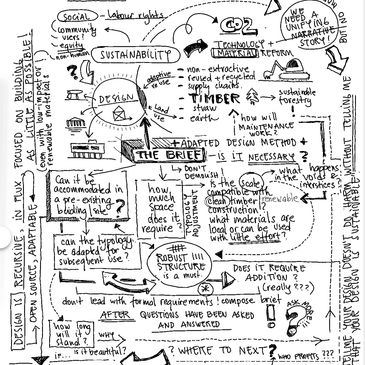 SOCIAL - Labour rights
community
users!
equity
non-human
?
SUSTAINABILITY
CO2
TECHNOLOGY +
MATERIAL REFORM
WE NEED A
UNIFYING
NARRATIVE
STORY!
DESIGN
adaptive
re-use
land
use
- non-extractive
- reused + recycled
supply chains.
TIMBER
straw
earth
sustainable
forestry
how will
MAINTENANCE
WORK?
THE BRIEF
+ ADAPTED DESIGN METHOD +
- IS IT NECESSARY?
- DON'T
DEMOLISH!
Can it be
accommodated
in a
pre-existing
building/site?
how
much
space
does it
require?
TYPOLOGY
ADJUSTMENT
Is the scale
compatible with
clean/timber/renewable
construction?
what materials are
local or can be used
with little effort?
what happens
in the void or
interstices?
can the typology
be adapted for
subsequent use?
ROBUST !!!!
STRUCTURE
is a must
DOES IT REQUIRE
ADDITION?
(really???)
don't lead with formal requirements! compose brief
AFTER QUESTIONS HAVE BEEN ASKED
AND ANSWERED
! ?
ASK MORE!!!
how long
will it
stand?
WHY
is... is it beautiful?
? WHERE TO NEXT?
who profits???
FOCUSED ON BUILDING
AS LITTLE AS POSSIBLE!
(even with low-impact or
renewable materials)
DESIGN IS RECURSIVE, IN FLUX
OPEN SOURCE, ADAPTABLE
YOUR DESIGN DOESN'T DO HARM WITHOUT TELLING ME
THAT YOUR DESIGN IS SUSTAINABLE.